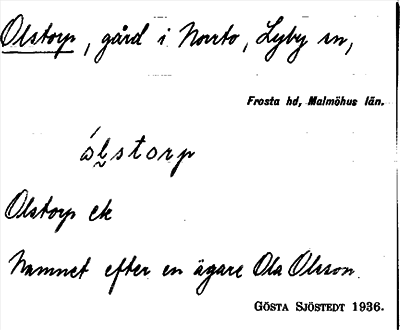 Olstorp, gård i Norrto, Lyby sn,
Frosta hd, Malmöhus län.
ólstorp
Olstorp ek
Namnet efter en ägare Ola Olsson.
Gösta Sjöstedt 1936.